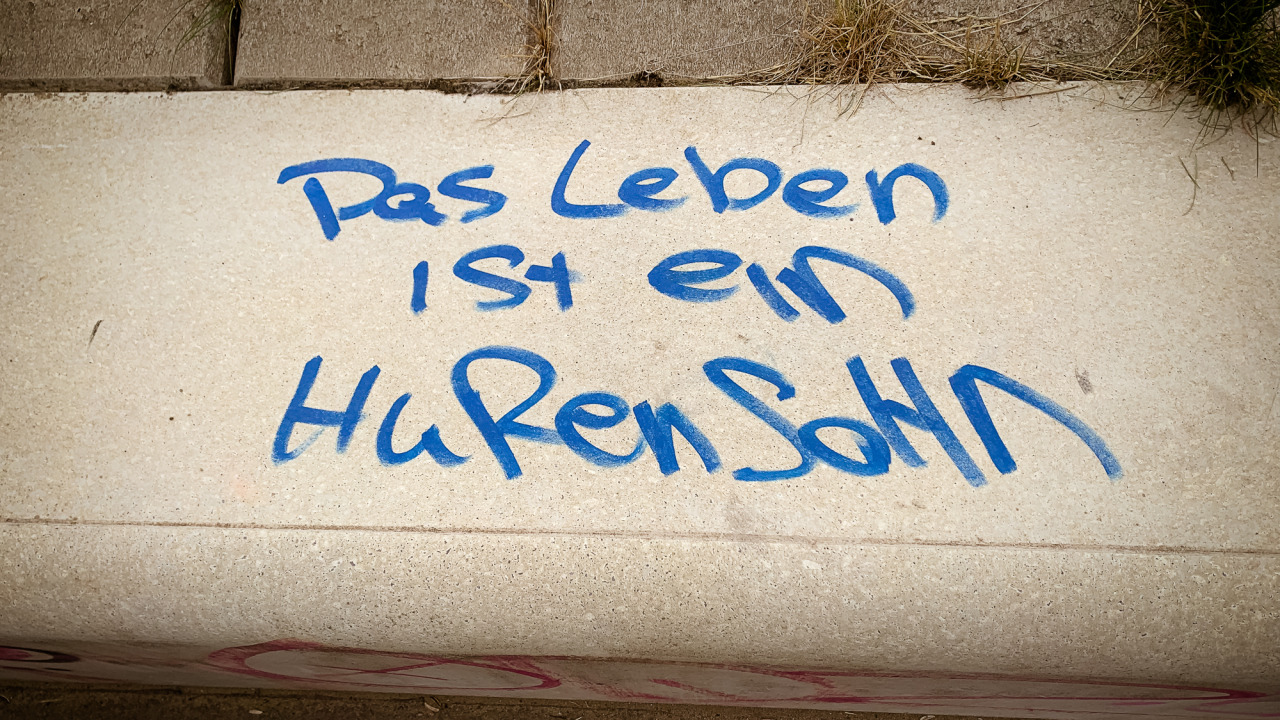 Das Leben
ist ein
HuRenSoHn